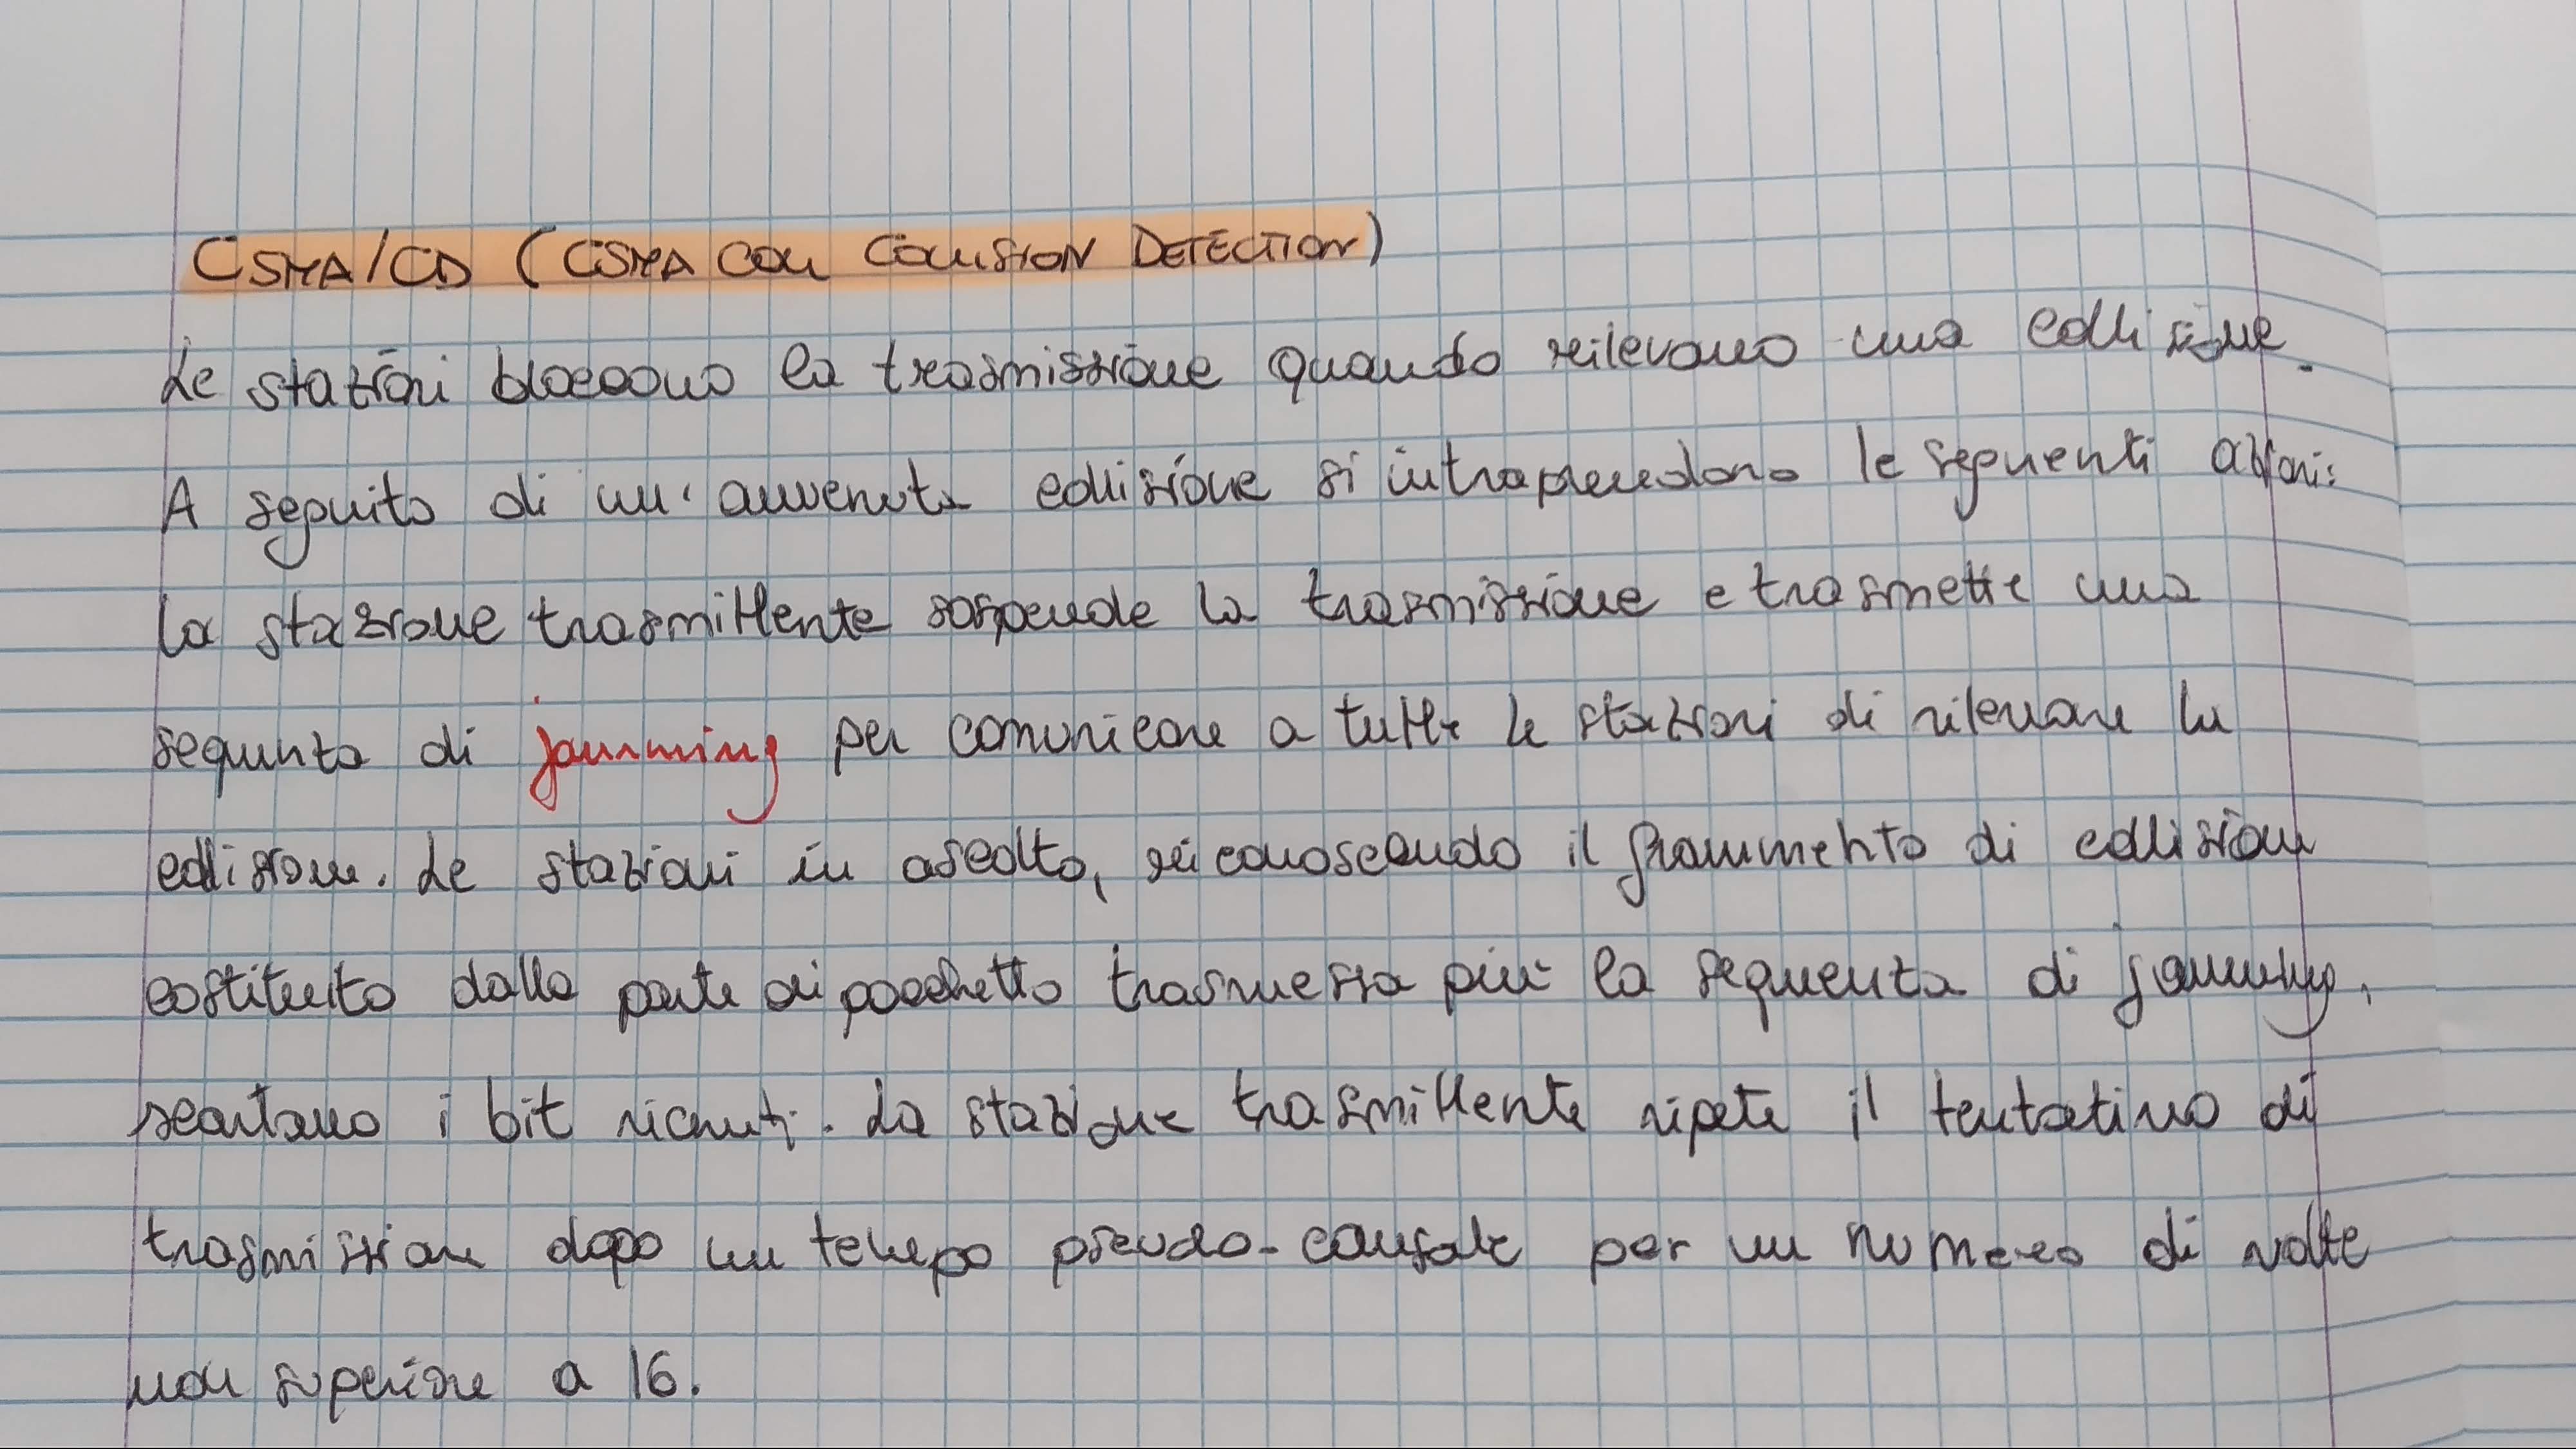 CSMA/CD (CSMA CON COLLISION DETECTION)
Le stazioni bloccano la trasmissione quando rilevano una collisione.
A seguito di un'avvenuta collisione si intraprendono le seguenti azioni:
la stazione trasmittente sospende la trasmissione e trasmette una
sequenza di jamming per comunicare a tutte le stazioni di rilevare la
collisione. Le stazioni in ascolto, riconoscendo il frammento di collisione
costituito dalla parte di pacchetto trasmessa più la sequenza di jamming,
scartano i bit ricevuti. La stazione trasmittente ripete il tentativo di
trasmissione dopo un tempo pseudo-causale per un numero di volte
non superiore a 16.